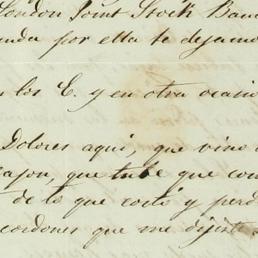 London Joint Stock Ban
nda por ella te dejamo
los C. y en otra ocasio
Dolores aqui, que vino
cajon, que tube que com
de lo que costó y perd
cordones que me dijiste